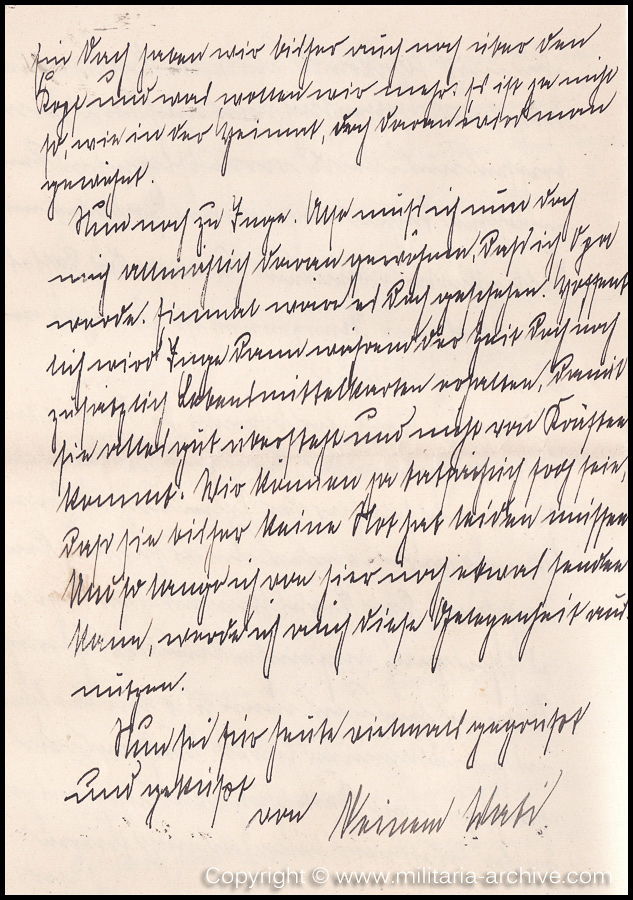 Ein Dach haben wir bisher auch noch über den
Kopf und was wollen wir mehr. Es ist ja nicht
so, wie in der Heimat, doch daran wird man
gewöhnt.
Nun noch zu Inge. Also muß ich nun doch
mich allmählich daran gewöhnen, daß ich Opa
werde. Einmal wäre es doch geschehen. Hoffent
lich wird Inge dann während der Zeit doch noch
zusätzlich Lebensmittelkarten erhalten, damit
sie alles gut übersteht und nicht von Kräften
kommt. Wir können ja tatsächlich froh sein,
daß sie bisher keine Not hat leiden müssen
Und so lange ich von hier noch etwas senden
kann, werde ich auch diese Gelegenheit aus
nutzen.
Nun sei für heute vielmals gegrüßt
und geküßt
von Deinem
Copyright © www.militaria-archive.com